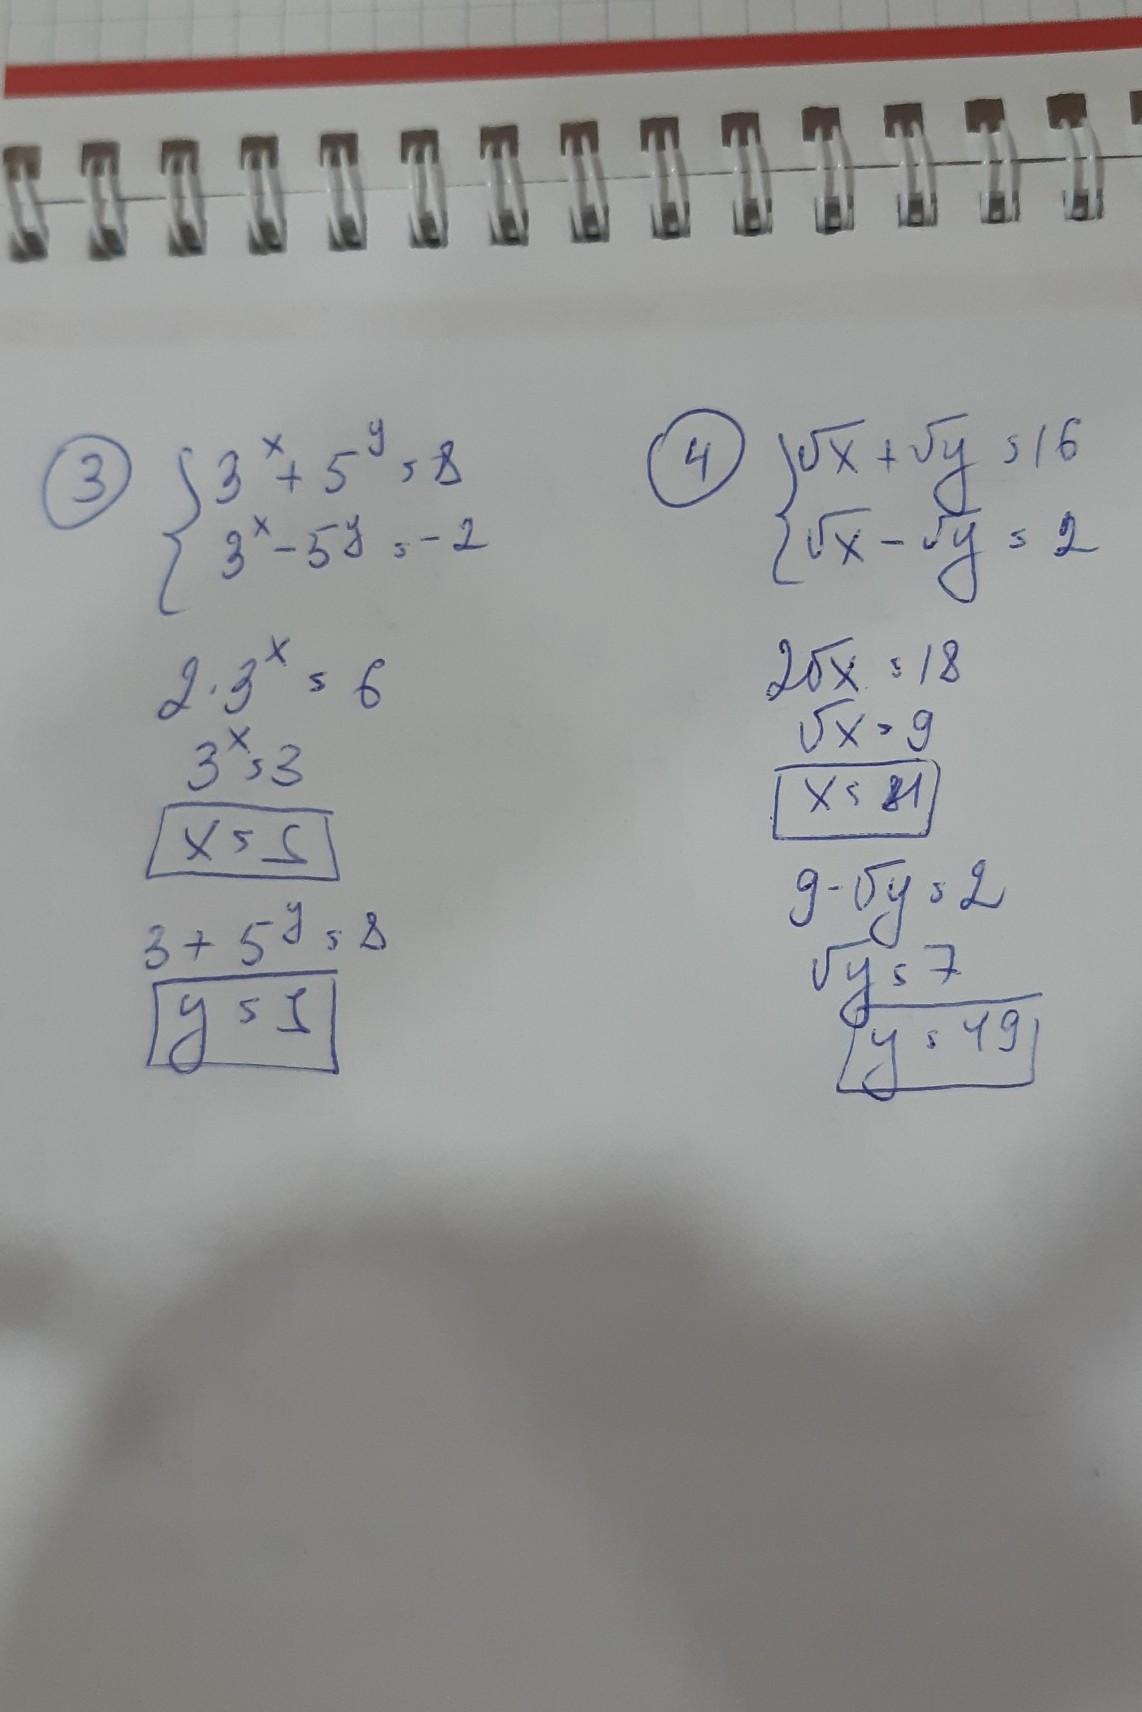 3
3^x + 5^y = 8
3^x - 5^y = -2
2·3^x = 6
3^x = 3
x = 1
3 + 5^y = 8
y = 1
4
√x + √y = 16
√x - √y = 2
2√x = 18
√x = 9
x = 81
9 - √y = 2
√y = 7
y = 49